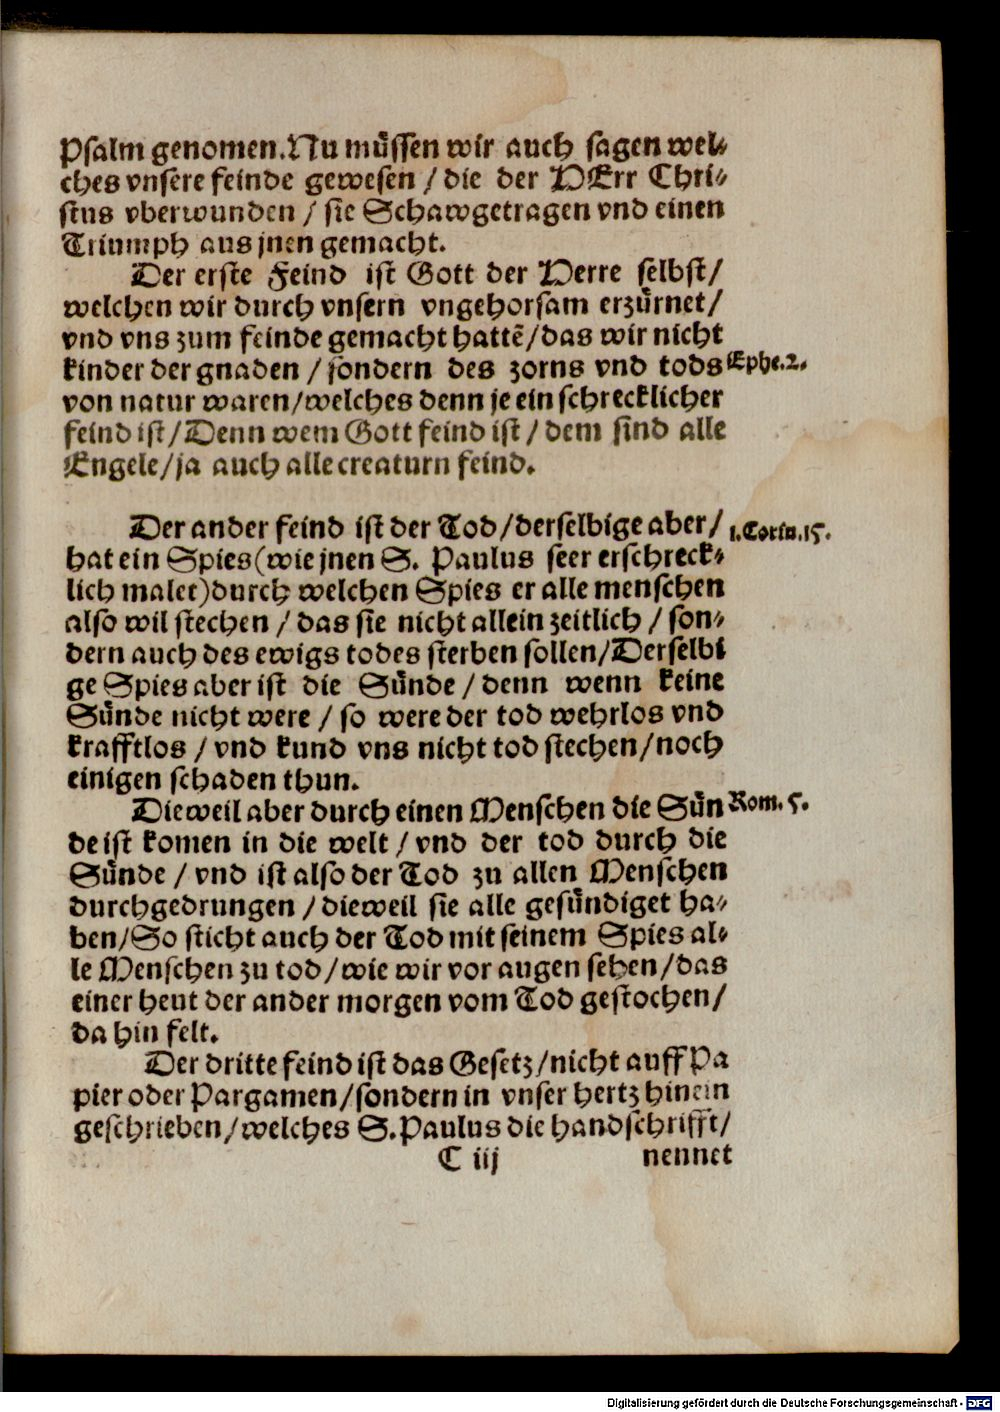 Psalm genomen. Nu müssen wir auch sagen wel-
ches vnsere feinde gewesen / die der HErr Chri-
stus vberwunden / sie Schawgetragen vnd einen
Triumph aus jnen gemacht.
Der erste Feind ist Gott der Herre selbst/
welchen wir durch vnsern vngehorsam erzürnet/
vnd vns zum feinde gemacht hattē/das wir nicht
kinder der gnaden / sondern des zorns vnd tods
Ephe.2.
von natur waren/welches denn je ein schrecklicher
feind ist/Denn wem Gott feind ist / dem sind alle
Engele/ja auch alle creaturn feind.
Der ander feind ist der Tod/derselbige aber/
1.Corin.15.
hat ein Spies(wie jnen S. Paulus seer erschreck-
lich malet)durch welchen Spies er alle menschen
also wil stechen / das sie nicht allein zeitlich / son-
dern auch des ewigs todes sterben sollen/Derselbi
ge Spies aber ist die Sünde / denn wenn keine
Sünde nicht were / so were der tod wehrlos vnd
krafftlos / vnd kund vns nicht tod stechen/noch
einigen schaden thun.
Dieweil aber durch einen Menschen die Sün
Rom. 5.
de ist komen in die welt / vnd der tod durch die
Sünde / vnd ist also der Tod zu allen Menschen
durchgedrungen / dieweil sie alle gesündiget ha-
ben/So sticht auch der Tod mit seinem Spies al-
le Menschen zu tod/wie wir vor augen sehen/das
einer heut der ander morgen vom Tod gestochen/
da hin felt.
Der dritte feind ist das Gesetz/nicht auff Pa
pier oder Pargamen/sondern in vnser hertz hinein
geschrieben/welches S.Paulus die handschrifft/
C iij nennet
Digitalisierung gefördert durch die Deutsche Forschungsgemeinschaft - DFG